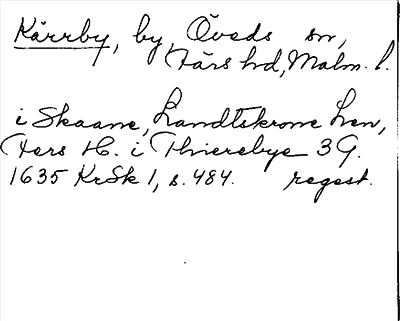 Kärrby, by, Öveds sn,
Färs hd, Malm. l.
i Skaane, Landtskrone Len,
Fers H. i Thierebye 3 G.
1635 KrSk 1, s. 484. regest.